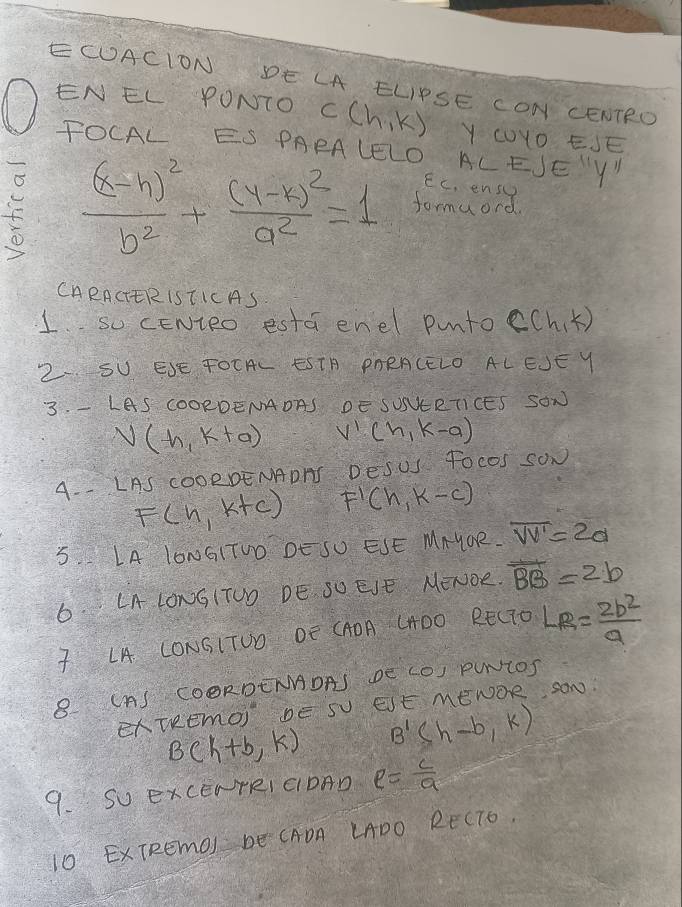 ECUACION DE LA ELIPSE CON CENTRO
EN EL PUNTO C(h,k) Y CUYO EJE
FOCAL ES PARALELO AL EJE "Y"
Vertical
(x-h)²/b² + (y-k)²/a² = 1 Ec. en su forma ord.
CARACTERISTICAS.
1.- SU CENTRO está en el punto C(h,k)
2- SU EJE FOCAL ESTA PARALELO AL EJE Y
3.- LAS COORDENADAS DE SUS VERTICES SON
V(h, k+a) V'(h, k-a)
4.- LAS COORDENADAS DE SUS FOCOS SON
F(h, k+c) F'(h, k-c)
5.- LA LONGITUD DE SU EJE MAYOR- VV' = 2a
6. LA LONGITUD DE SU EJE MENOR. BB = 2b
7 LA LONGITUD DE CADA LADO RECTO LR = 2b²/a
8- LAS COORDENADAS DE LOS PUNTOS
EXTREMOS DE SU EJE MENOR SON:
B(h+b, k) B'(h-b, k)
9. SU EXCENTRICIDAD e = c/a
10 EXTREMOS DE CADA LADO RECTO.